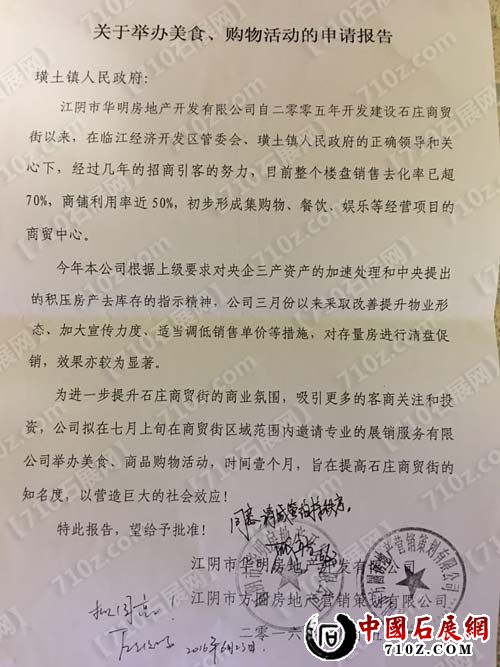 关于举办美食、购物活动的申请报告
璜土镇人民政府：
江阴市华明房地产开发有限公司自二零零五年开发建设石庄商贸
街以来，在临江经济开发区管委会、璜土镇人民政府的正确领导和关
心下，经过几年的招商引客的努力，目前整个楼盘销售去化率已超
70%，商铺利用率近 50%，初步形成集购物、餐饮、娱乐等经营项目的
商贸中心。
今年本公司根据上级要求对央企三产资产的加速处理和中央提出
的积压房产去库存的指示精神，公司三月份以来采取改善提升物业形
态、加大宣传力度、适当调低销售单价等措施，对存量房进行清盘促
销，效果亦较为显著。
为进一步提升石庄商贸街的商业氛围，吸引更多的客商关注和投
资，公司拟在七月上旬在商贸街区域范围内邀请专业的展销服务有限
公司举办美食、商品购物活动，时间壹个月，旨在提高石庄商贸街的
知名度，以营造巨大的社会效应！
特此报告，望给予批准！
同意
江阴市华明房地产开发有限公司
江阴市方圆房地产营销策划有限公司
拟同意！
二零一六
2016年6月23日
中国石展网
www.710z.com
【石展网】
710z.com